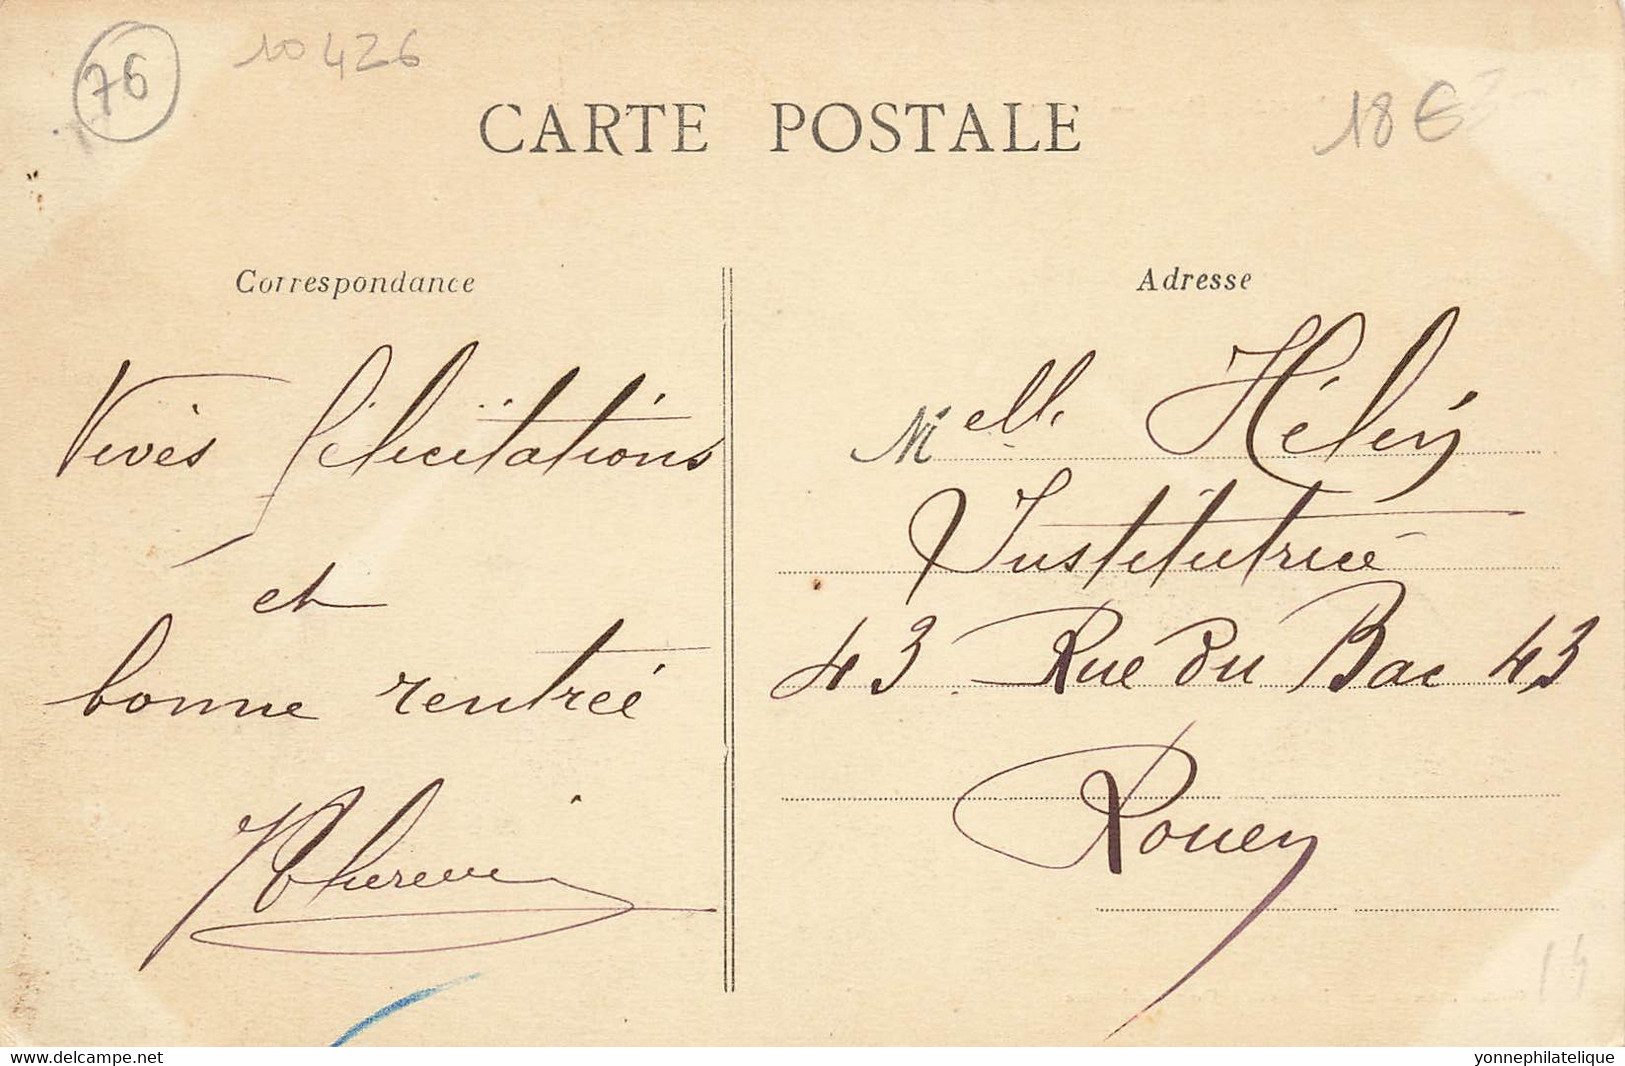 76
10426
CARTE POSTALE
18€
Correspondance
Adresse
Vives félicitations
et
bonne rentrée
Melle Hélin
Institutrice
43 Rue du Bac 43
Rouen
14
www.delcampe.net
yonnephilatelique